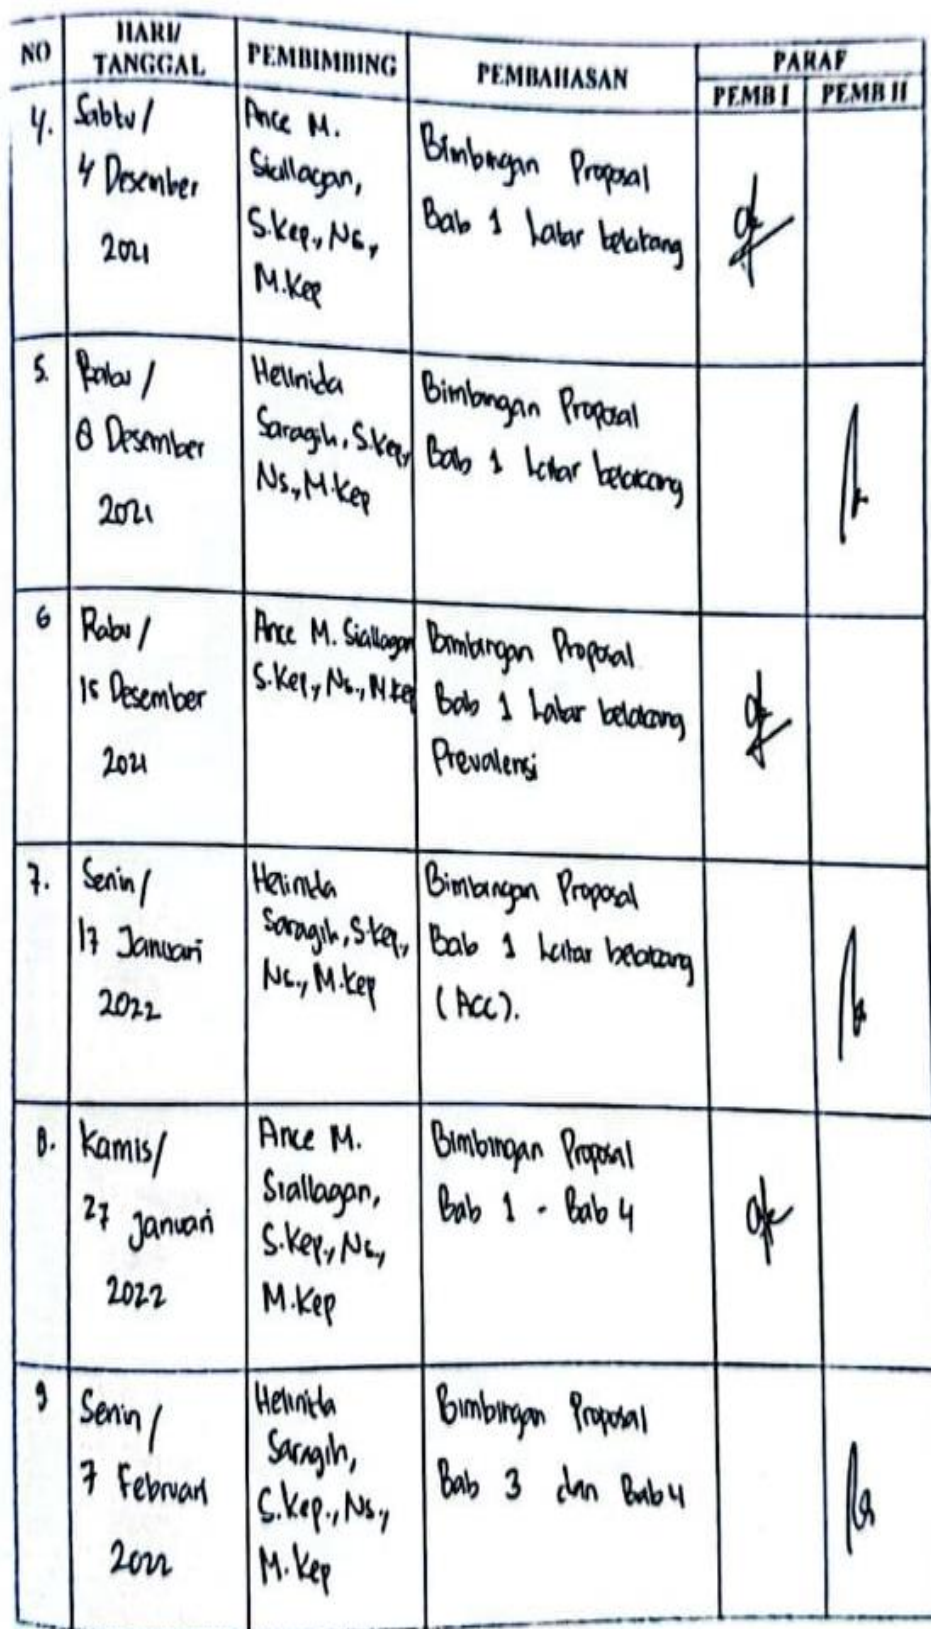 NO HARI/ TANGGAL PEMBIMBING PEMBAHASAN PARAF
PEMB I PEMB II
4. Sabtu/
4 Desember
2021
Ance M.
Siallagan,
S.Kep., Ns.,
M.Kep
Bimbingan Proposal
Bab 1 Latar belakang
5. Rabu /
8 Desember
2021
Helinida
Saragih, S.Kep,
Ns., M.Kep
Bimbingan Proposal
Bab 1 Latar belakang
6 Rabu /
15 Desember
2021
Ance M. Siallagan
S.Kep., Ns., M.Kep
Bimbingan Proposal
Bab 1 Latar belakang
Prevalensi
7. Senin /
17 Januari
2022
Helinida
Saragih, S.Kep,
Ns., M.Kep
Bimbingan Proposal
Bab 1 Latar belakang
(ACC).
8. Kamis/
27 Januari
2022
Ance M.
Siallagan,
S.Kep., Ns.,
M.Kep
Bimbingan Proposal
Bab 1 - Bab 4
9 Senin /
7 Februari
2022
Helinida
Saragih,
S.Kep., Ns.,
M.Kep
Bimbingan Proposal
Bab 3 dan Bab 4